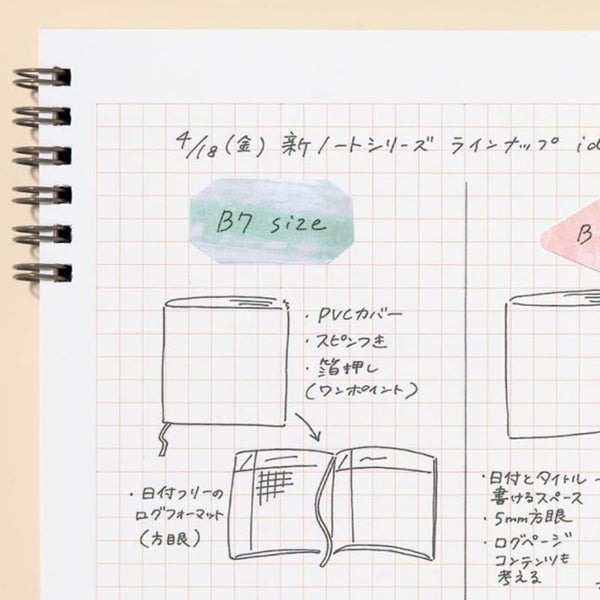 4/18(金) 新ノートシリーズ ラインナップ id
B7 size
B
・PVCカバー
・スピンつき
・箔押し
(ワンポイント)
・日付フリーの
ログフォーマット
(方眼)
・日付とタイトル
書けるスペース
・5mm方眼
・ログページ
コンテンツも
考える